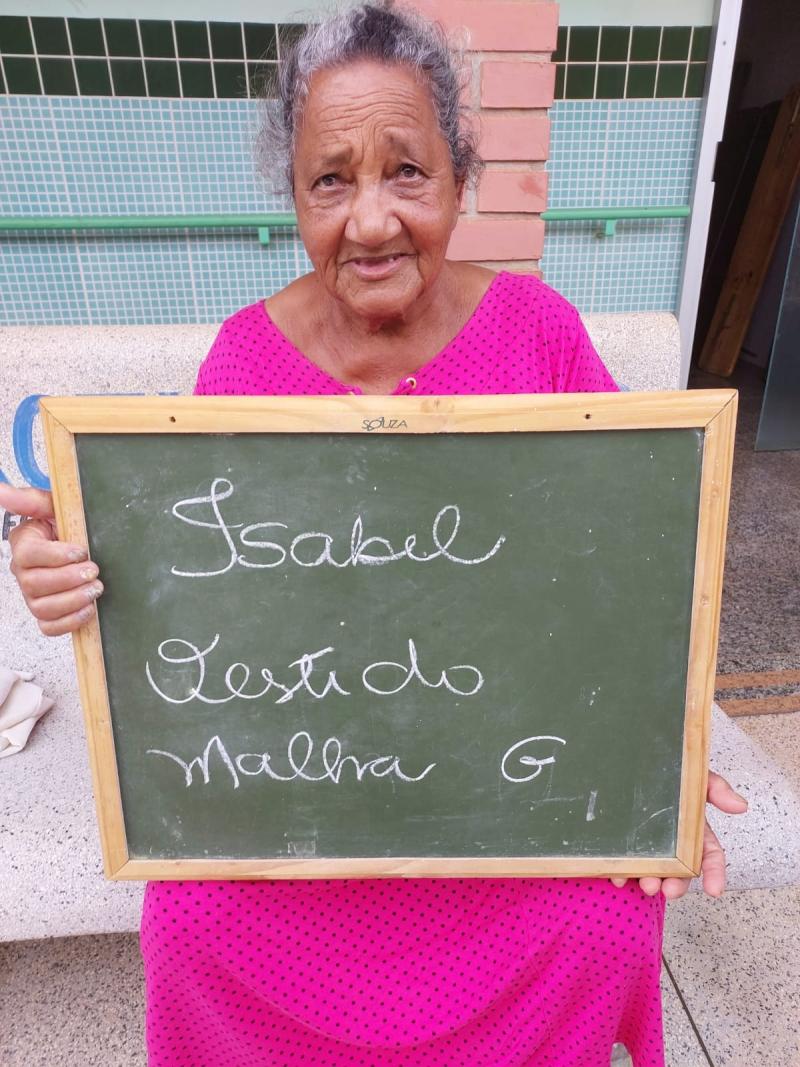 SOUZA
Isabel
Vestido
Malha G